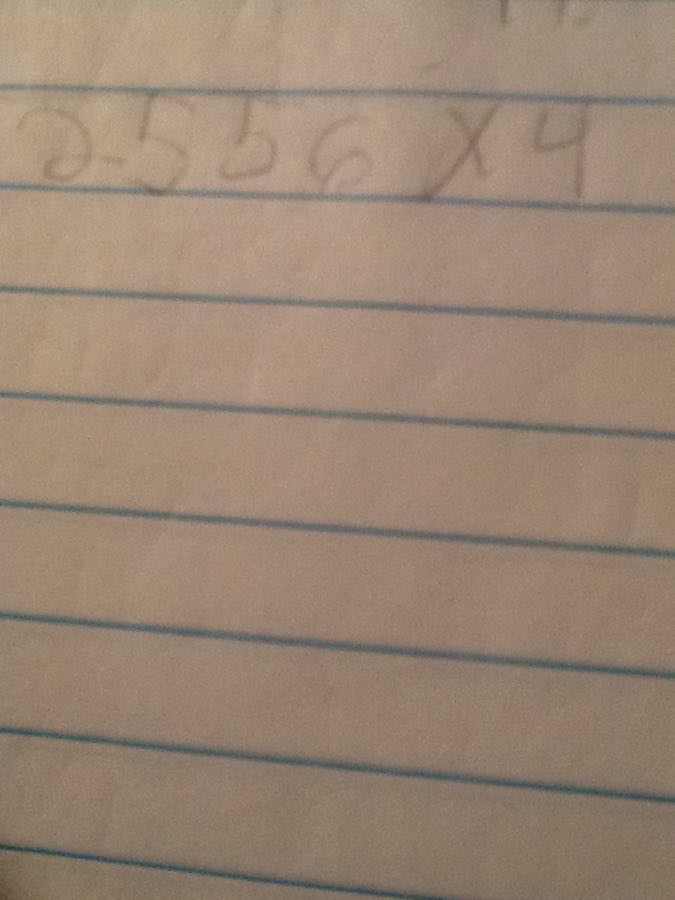 2556 x 4